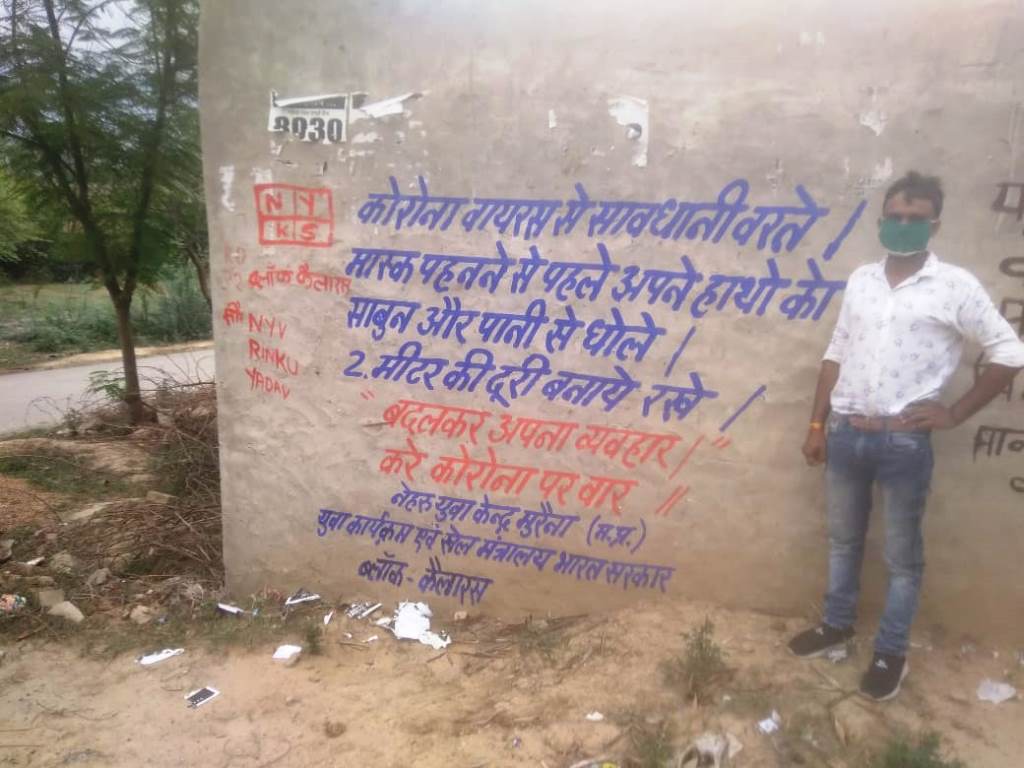 8030
NY
KS
ब्लॉक कैलारस
NYV
RINKU
YADAV
कोरोना वायरस से सावधानी वरते |
मास्क पहनने से पहले अपने हाथो को
साबुन और पानी से धोले |
2. मीटर की दूरी बनाये रखे |
"बदलकर अपना व्यवहार |"
करे कोरोना पर वार ||
नेहरु युवा केन्द्र मुरैना (म.प्र.)
युवा कार्यक्रम एवं खेल मंत्रालय भारत सरकार
ब्लॉक - कैलारस